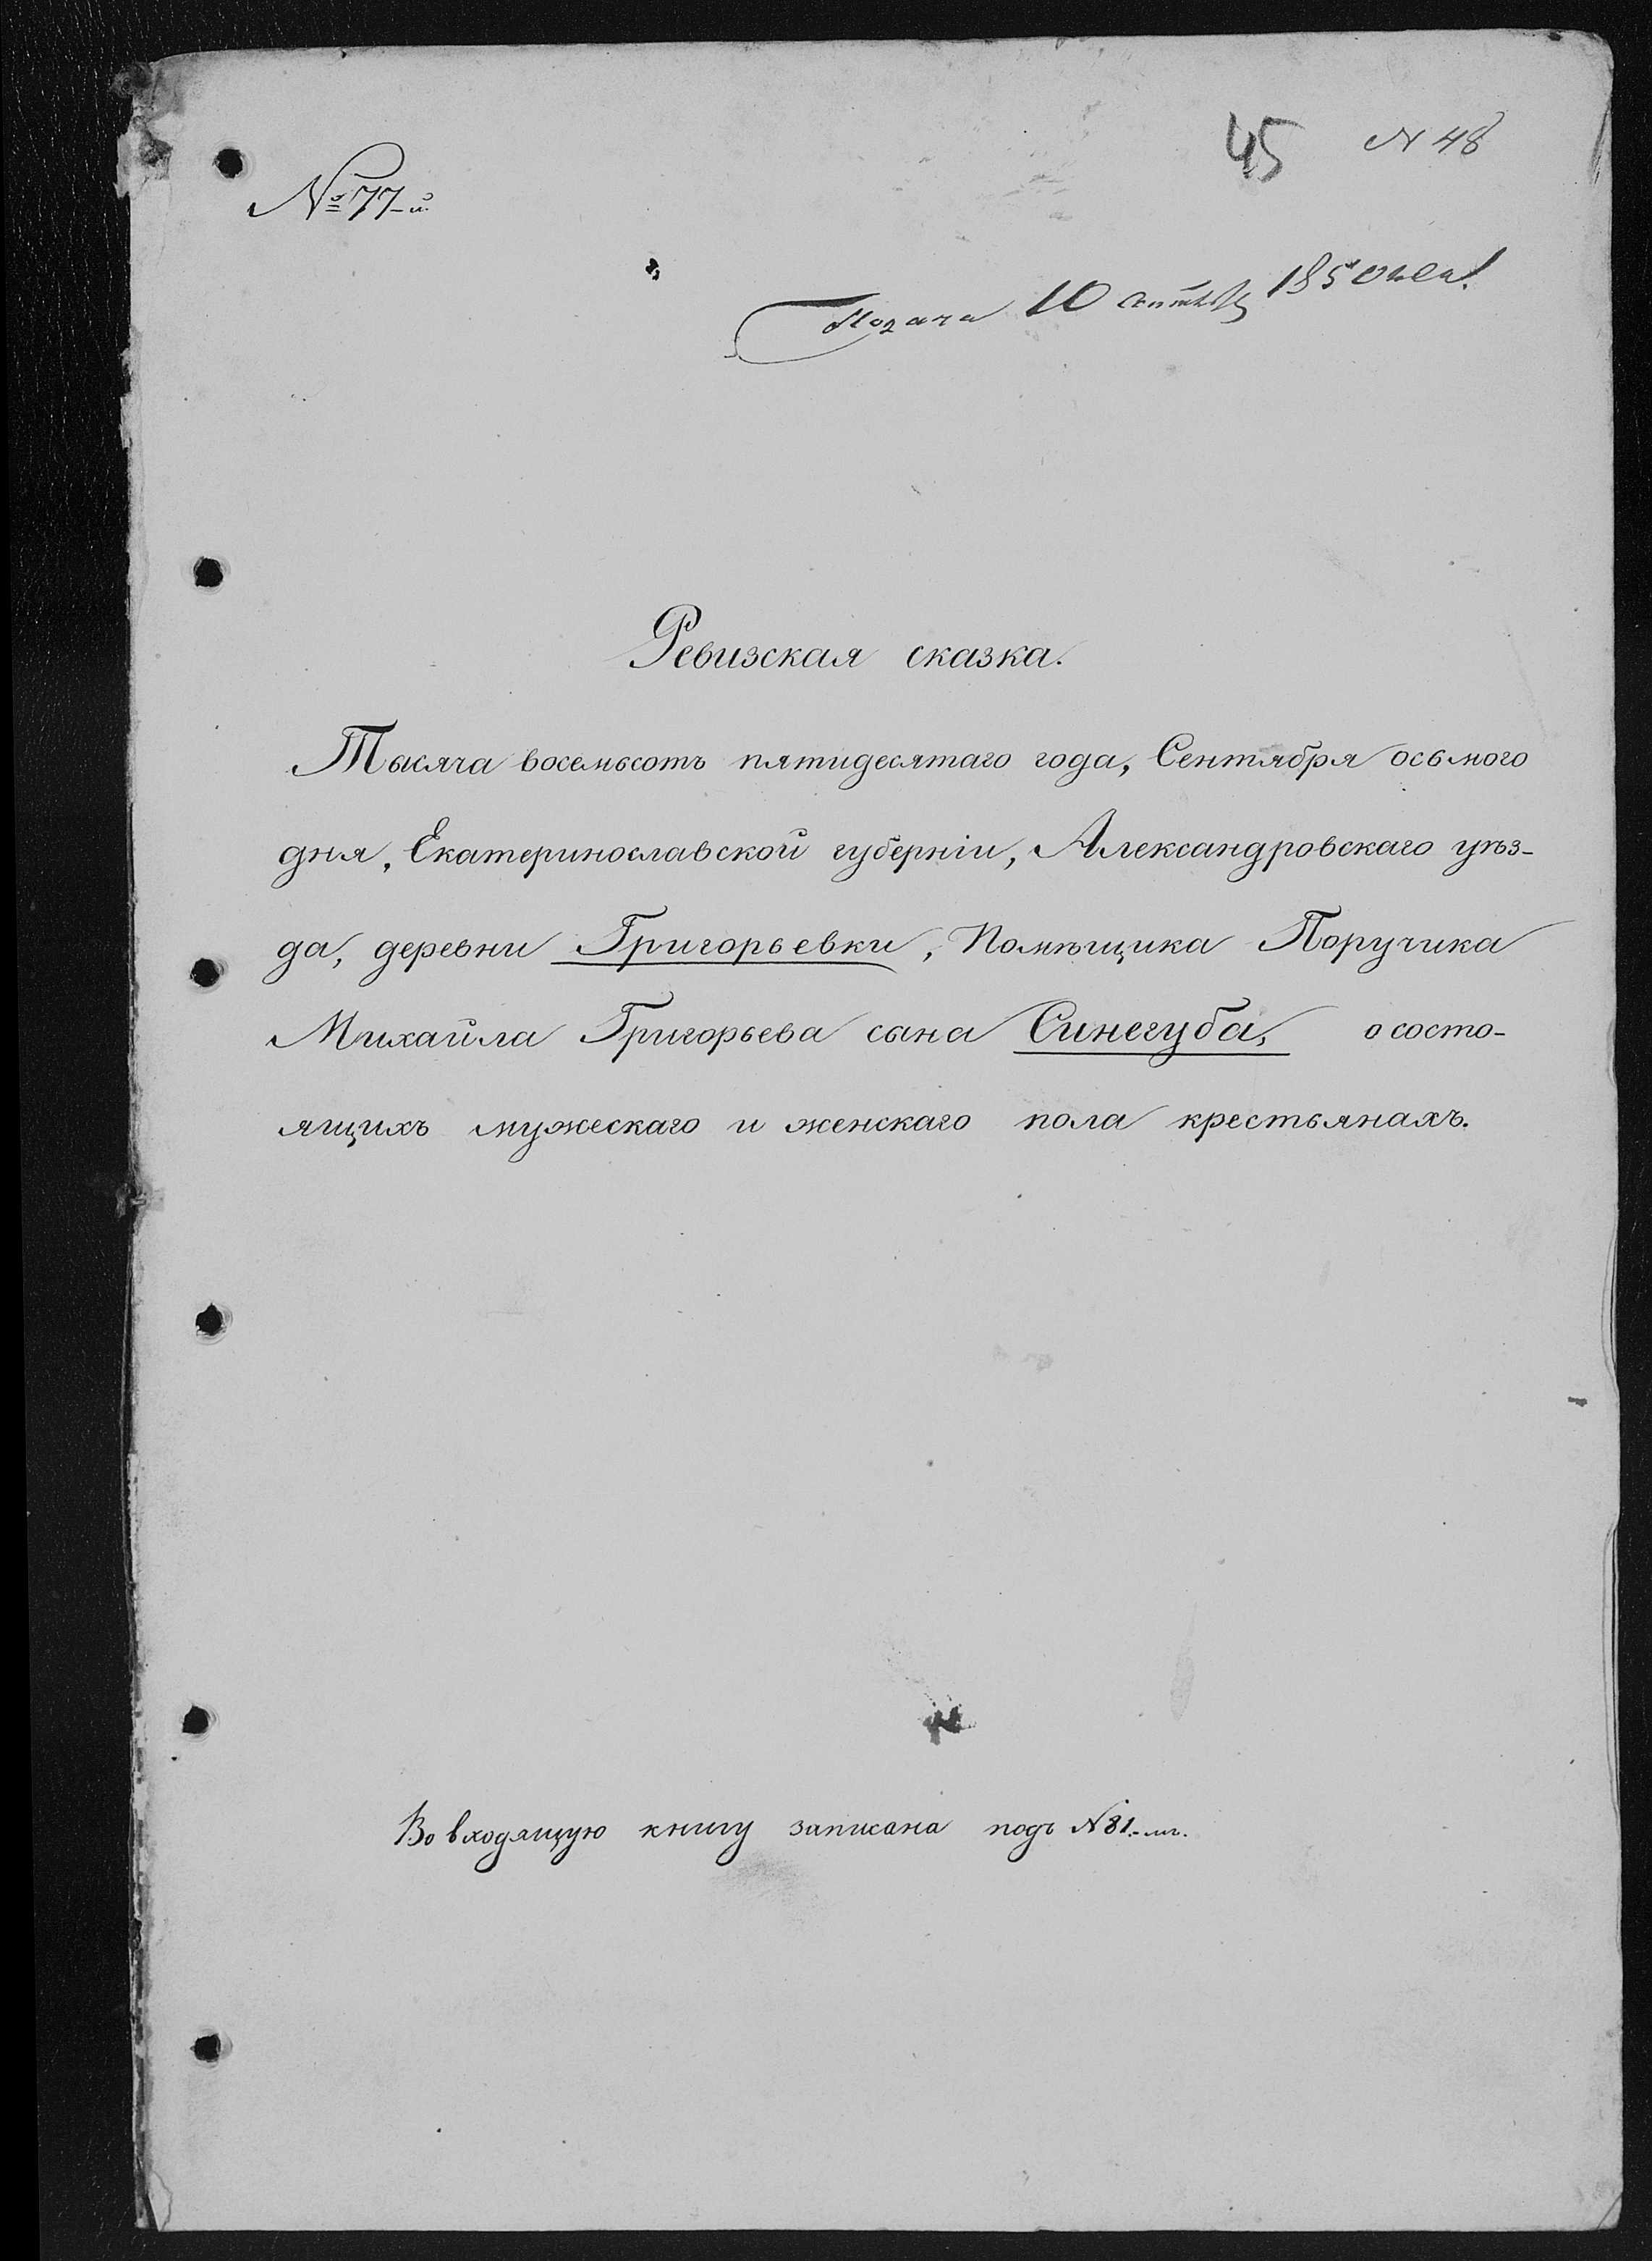 45 N 48
№ 77-й
Подана 10 сентября 1850 года
Ревизская сказка.
Тысяча восемьсотъ пятидесятаго года, Сентября осьмого
дня, Екатеринославской губерніи, Александровскаго уѣз-
да, деревни Григорьевки, Помѣщика Поручика
Михайла Григорьева сына Синегуба, о состо-
ящихъ мужескаго и женскаго пола крестьянахъ.
Во входящую книгу записана подъ N 81.-мъ.